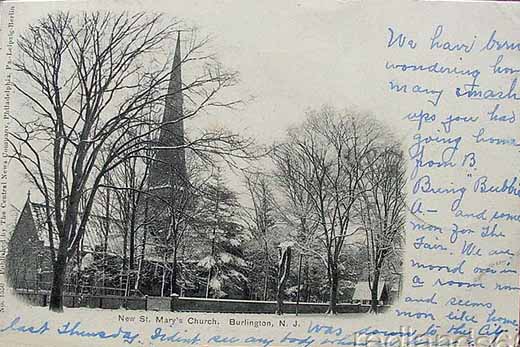 We have been
wondering how
many smash
ups you had
going home
from B
Bring "Bubbie
A — and some
mon for the
Fair. We are
moved over in
a room now
and seems
more like home
Was down to the City
last Thursday. Dident see any body
New St. Mary's Church. Burlington, N. J.
Published by The Central News Company, Philadelphia, Pa.-Leipzig-Berlin